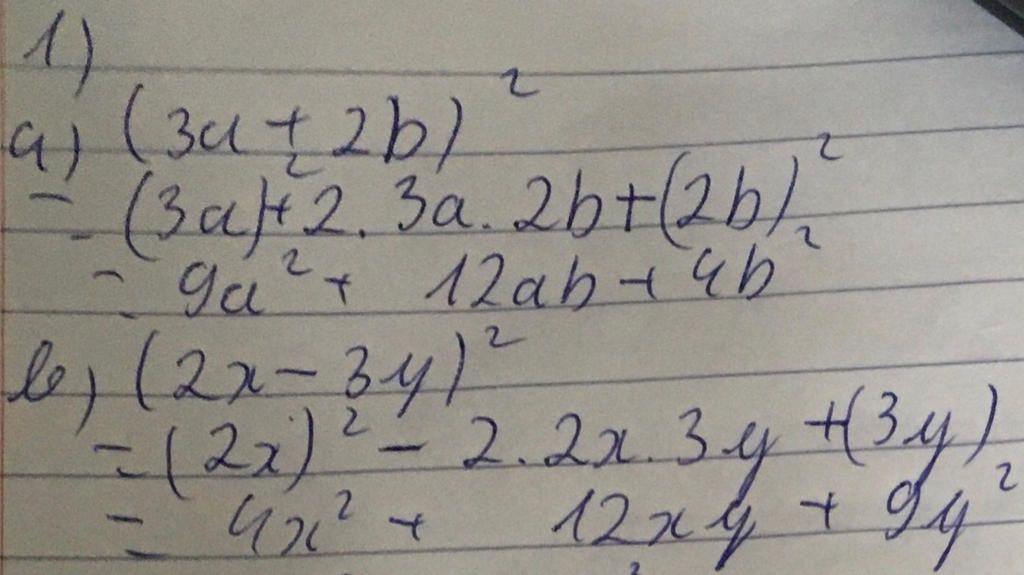 1)
a) (3a + 2b)²
= (3a)² + 2. 3a. 2b + (2b)²
= 9a² + 12ab + 4b²
b) (2x - 3y)²
= (2x)² - 2. 2x. 3y + (3y)
= 4x² + 12xy + 9y²